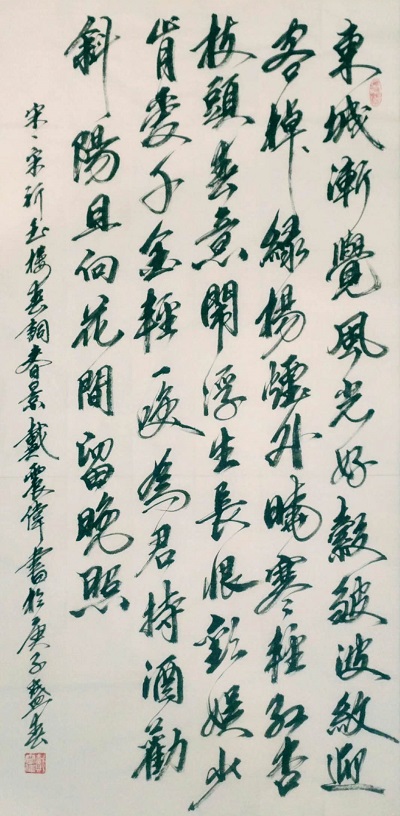 東城漸覺風光好縠皺波紋迎
客棹綠楊煙外曉寒輕紅杏
枝頭春意鬧浮生長恨歡娛少
肯愛千金輕一笑為君持酒勸
斜陽且向花間留晚照
宋、宋祁玉樓春詞春景戴震偉書於庚子盛春